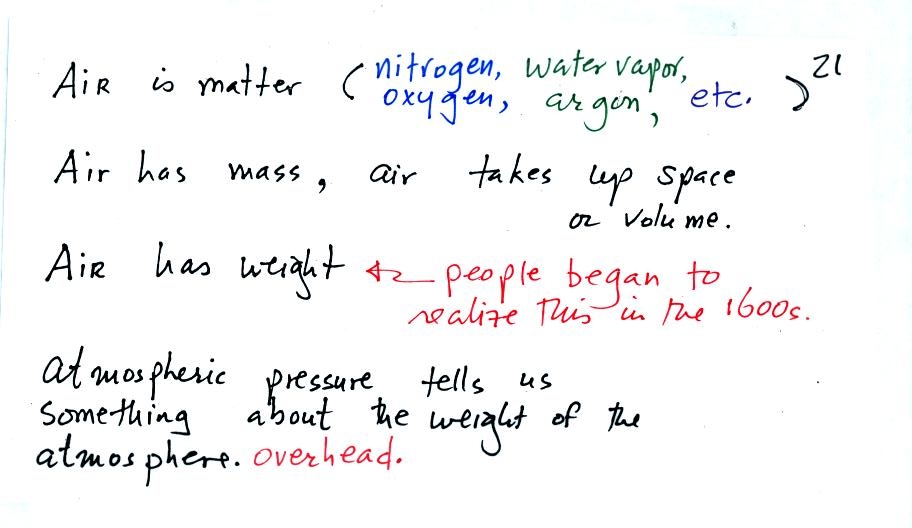 Air is matter ( nitrogen, water vapor,
oxygen, argon, etc. ) 21
Air has mass, air takes up space
or volume.
Air has weight ← people began to
realize this in the 1600s.
atmospheric pressure tells us
something about the weight of the
atmosphere. overhead.